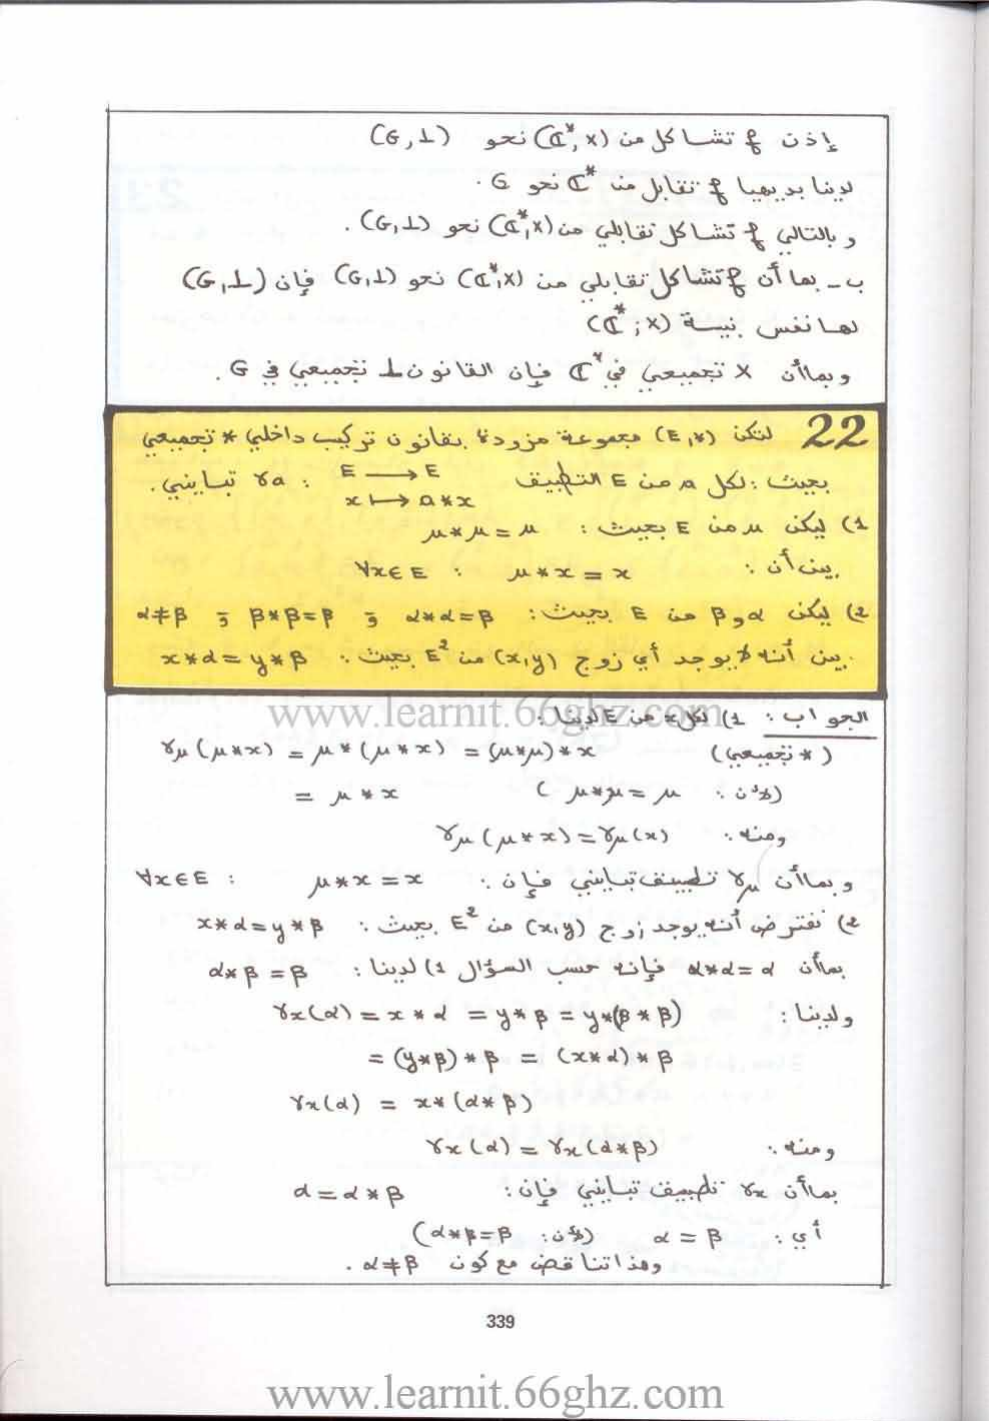 إذن f تشاكل من (ℂ*, ×) نحو (G, ⊥)
لدينا بديهيا f تقابل من ℂ* نحو G .
و بالتالي f تشاكل تقابلي من (ℂ*, ×) نحو (G, ⊥) .
ب - بما أن f تشاكل تقابلي من (ℂ*, ×) نحو (G, ⊥) فإن (G, ⊥)
لها نفس بنية (ℂ*; ×)
وبما أن × تجميعي في ℂ* فإن القانون ⊥ تجميعي في G .
22 لتكن (E, *) مجموعة مزودة بقانون تركيب داخلي * تجميعي
بحيث : لكل a من E التطبيق γa : E → E تبايني .
x ↦ a * x
1) ليكن μ من E بحيث : μ * μ = μ
بين أن : μ * x = x : ∀x∈E
2) ليكن α و β من E بحيث : α*α=β و β*β=β و α≠β
بين أنه لا يوجد أي زوج (x,y) من E² بحيث : x*α = y*β
www.learnit.66ghz.com
الجواب : 1) لكل x من E لدينا :
γμ(μ*x) = μ*(μ*x) = (μ*μ)*x (* تجميعي)
= μ * x (لأن : μ*μ = μ)
ومنه : γμ(μ*x) = γμ(x)
و بما أن γμ تطبيق تبايني فإن : μ*x = x : ∀x∈E
2) نفترض أنه يوجد زوج (x,y) من E² بحيث : x*α = y*β
بما أن α*α = α فإنه حسب السؤال 1) لدينا : α*β = β
ولدينا : γx(α) = x*α = y*β = y*(β*β)
= (y*β)*β = (x*α)*β
γx(α) = x*(α*β)
ومنه : γx(α) = γx(α*β)
بما أن γx تطبيق تبايني فإن : α = α*β
أي : α = β (لأن : α*β=β)
وهذا تناقض مع كون α≠β .
339
www.learnit.66ghz.com